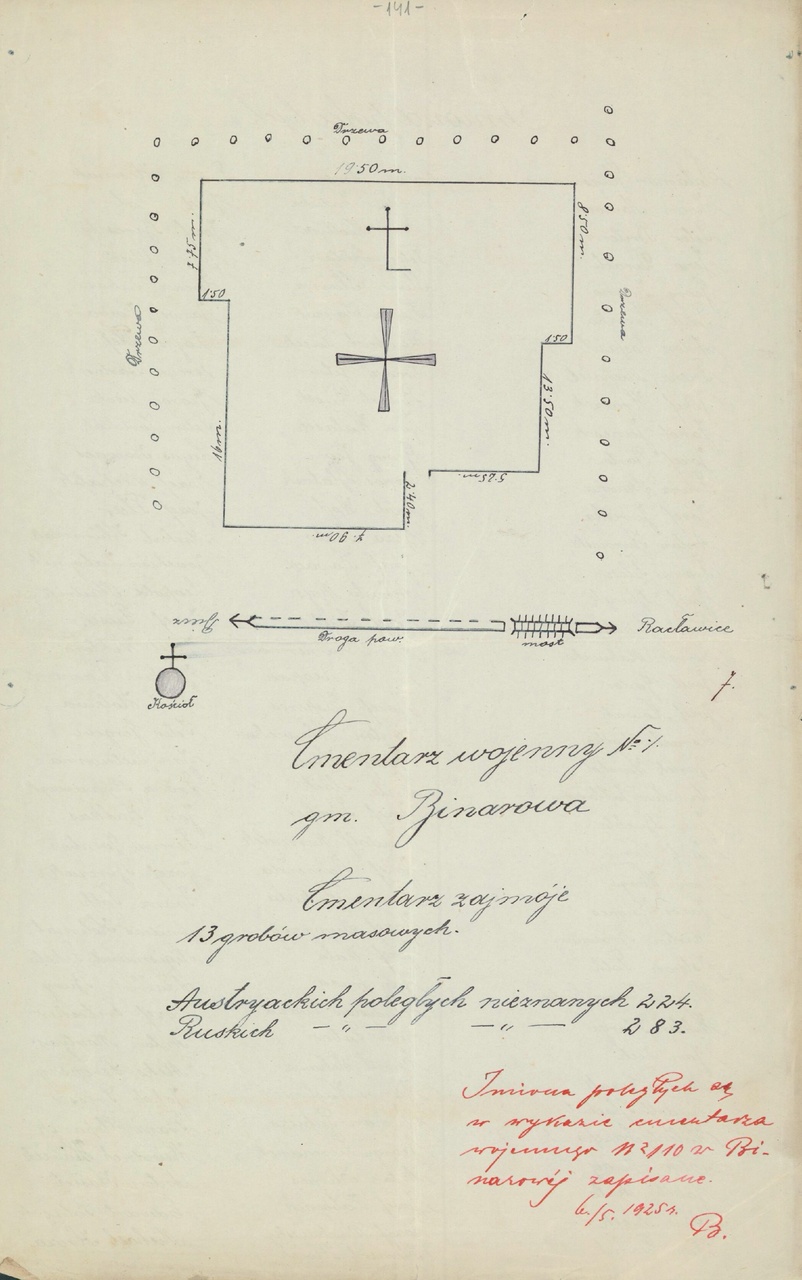 -141-
Drzewa
19·50 m.
8·50 m.
7·75 m.
1·50
1·50
Drzewa
Drzewa
13·50 m.
14 m.
5·25 m.
2·40 m.
7·90 m.
Biecz
Droga pow.
most
Racławice
Kościół
7.
Cmentarz wojenny № 1.
gm. Binarowa
Cmentarz zajmóje
13 grobów masowych.
Austryackich poległych nieznanych 224.
Ruskich — „ — — „ — 283.
Imiona poległych są
w wykazie cmentarza
wojennego № 110 w Bi-
narowéj zapisane.
6/5. 1925 r.
B.